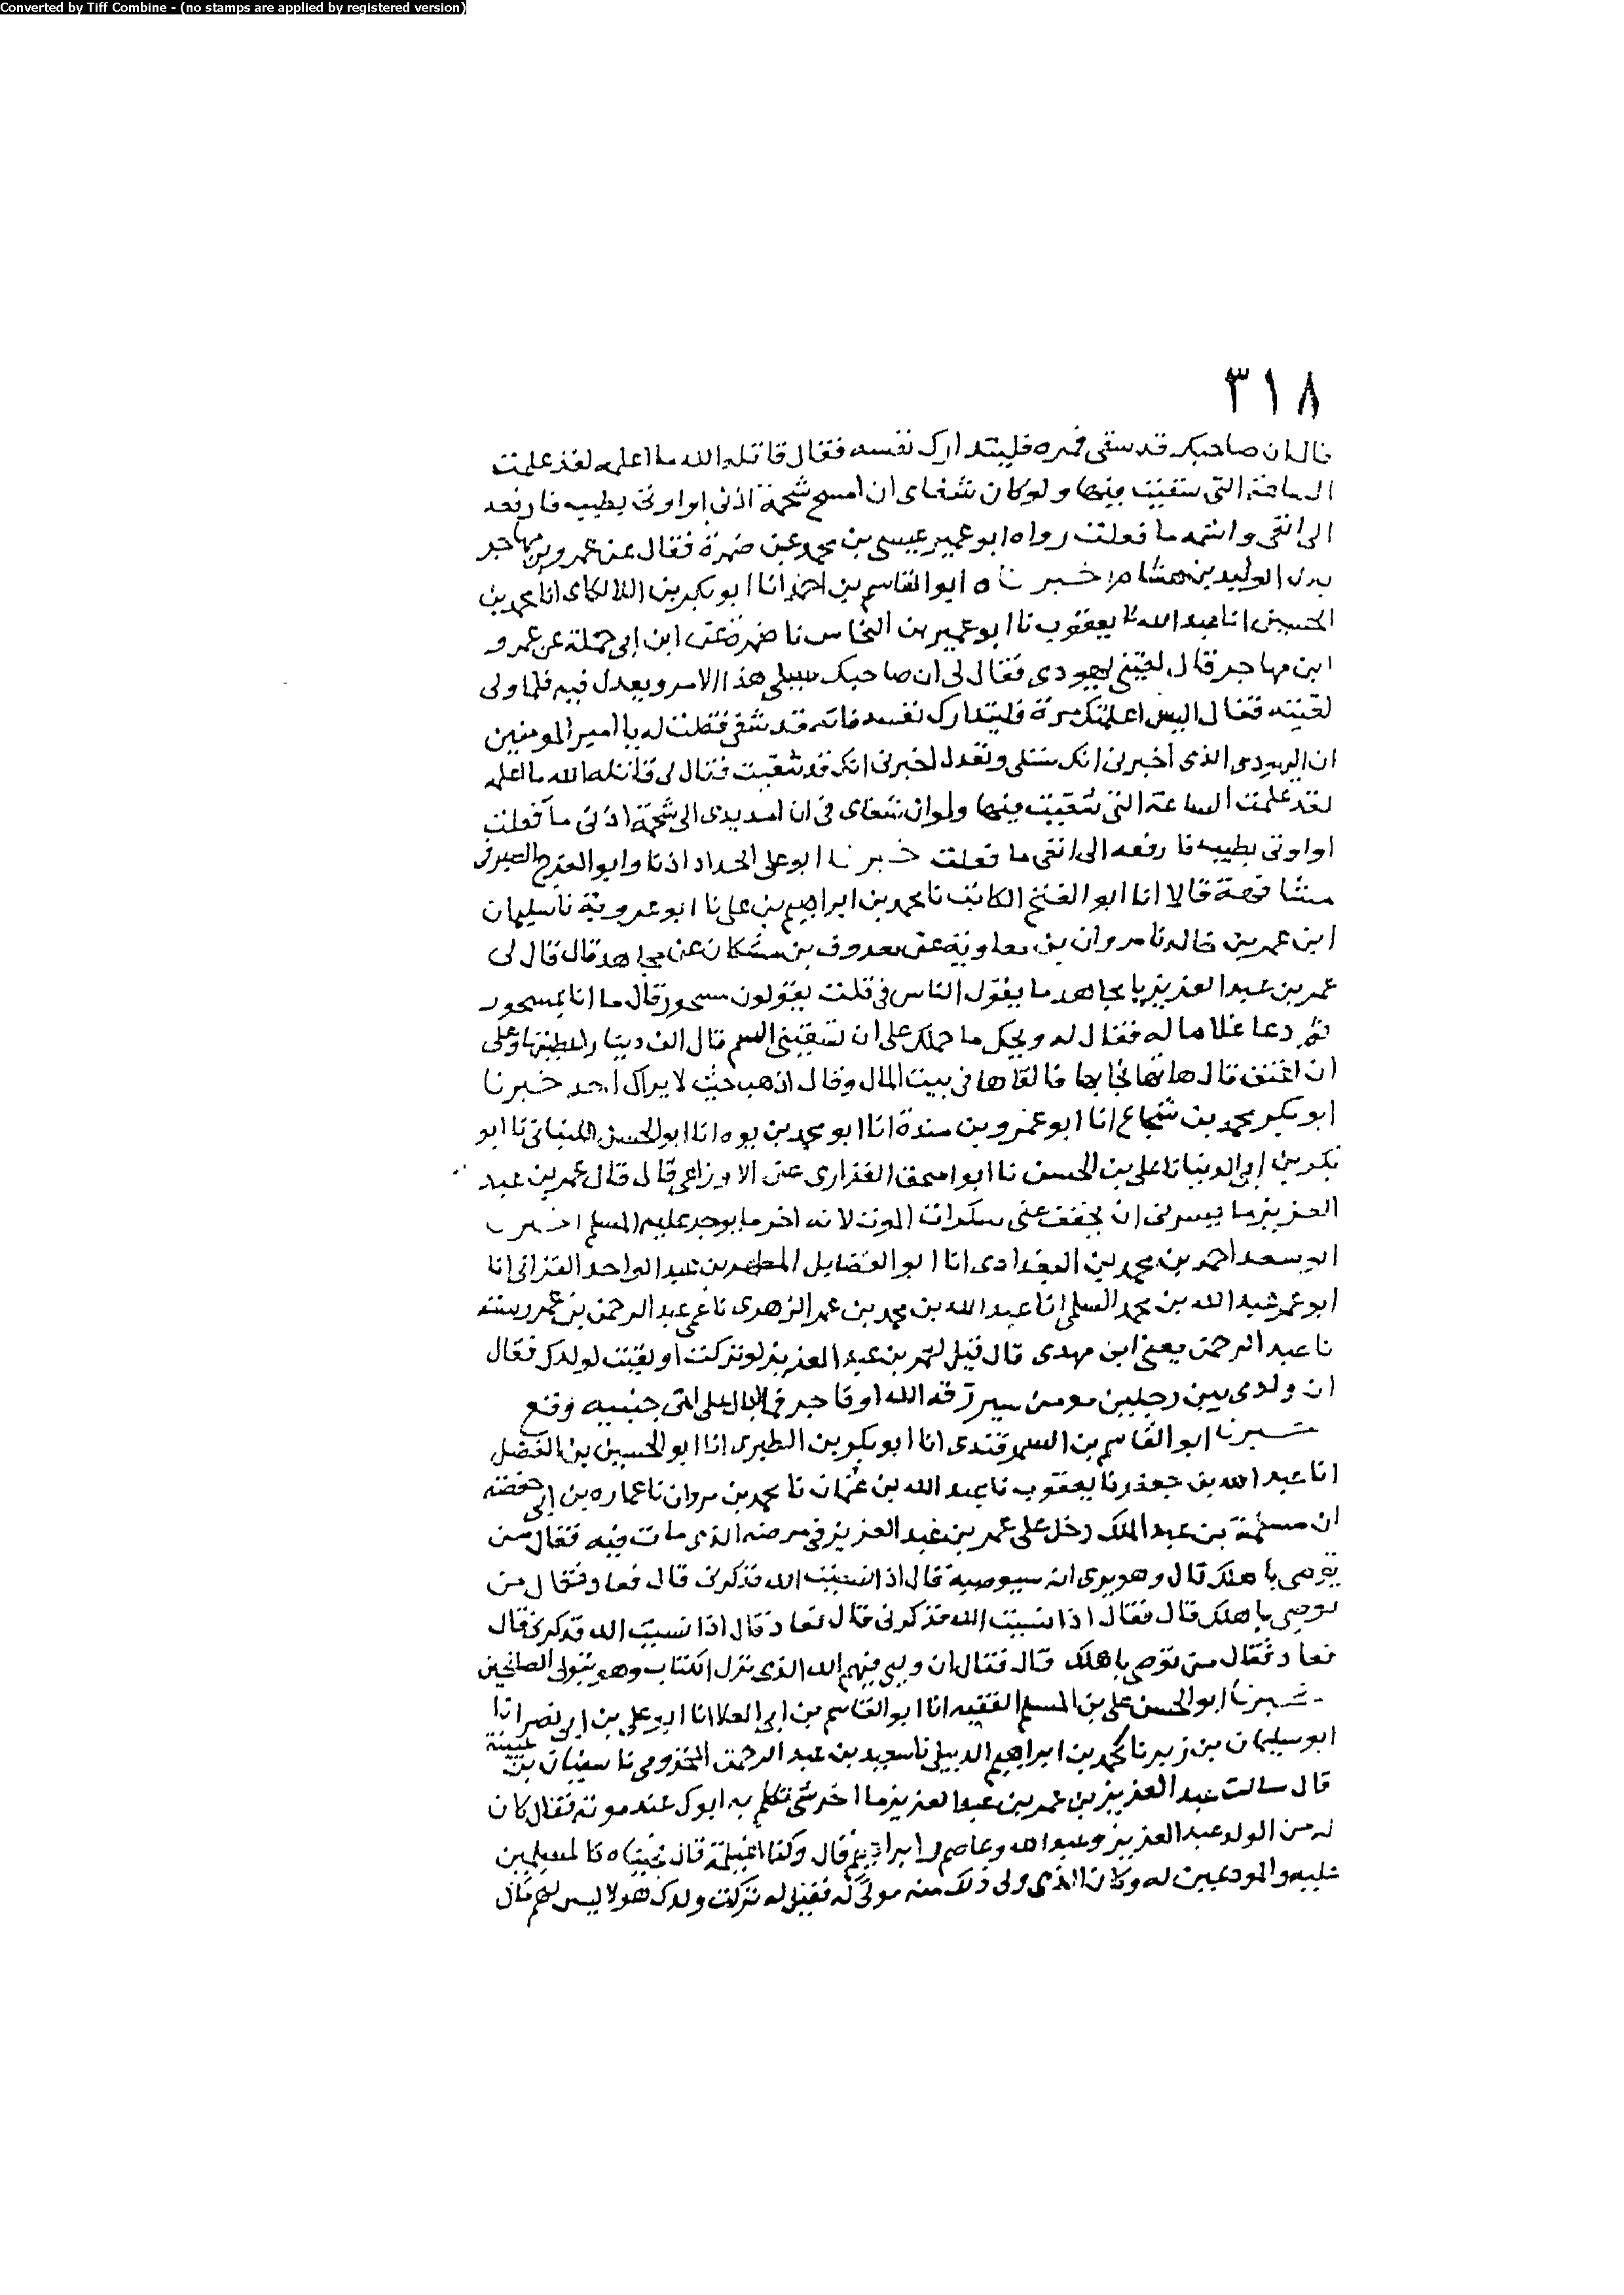 Converted by Tiff Combine - (no stamps are applied by registered version)
٣١٨
قال ان صاحبك قد سقى فمره فليتدارك نفسه فقال قاتله الله ما اعلمه لقد علمت
الساعة التى سقيت فيها ولو كان شفاى ان امسح شحمة اذنى او اوتى بطيب فارفعه
الى انفى واشمه ما فعلت رواه ابو عمير عيسى بن محمد عن ضمرة فقال عن عمرو بن مهاجر
بدل الوليد بن هشام اخبرناه ابو القاسم بن احمد انا ابو بكر بن اللالكاى انا محمد بن
الحسين انا عبد الله نا يعقوب نا ابو عمير بن النحاس نا ضمرة عن ابن ابى حملة عن عمرو
ابن مهاجر قال لقينى يهودى فقال لى ان صاحبك سيلى هذا الامر ويعدل فيه فلما ولى
لقيته فقال اليس اعلمتك مرة فليتدارك نفسه فانه قد سقى فقلت له يا امير المومنين
ان اليهودى الذى اخبرنى انك ستلى وتعدل اخبرنى انك قد سقيت فقال لى قاتله الله ما اعلمه
لقد علمت الساعة التى سقيت فيها ولو ان شفاى فى ان امد يدى الى شحمة اذنى ما فعلت
او اوتى بطيب فارفعه الى انفى ما فعلت خبرنا ابو على الحداد اذنا وابو الفرج الصيرفى
مشافهة قالا انا ابو الفتح الكاتب نا محمد بن ابراهيم بن على نا ابو عروبة نا سليمان
ابن عمر بن خالد نا مروان بن معاوية عن معروف بن مشكان عن مجاهد قال قال لى
عمر بن عبد العزيز يا مجاهد ما يقول الناس فى قلت يقولون مسحور قال ما انا بمسحور
ثم دعا غلاما له فقال له ويحك ما حملك على ان تسقينى السم قال الف دينار اعطيتها وعلى
ان اعتق قال هاتها فجا بها فالقاها فى بيت المال وقال اذهب حيث لا يراك احد خبرنا
ابو بكر محمد بن شجاع انا ابو عمرو بن مندة انا ابو محمد بن يوه انا ابو الحسن اللنبانى نا ابو
بكر بن ابى الدنيا نا على بن الحسن نا ابو اسحق الفزارى عن الاوزاعى قال قال عمر بن عبد
العزيز ما يسرنى ان يخفف عنى سكرات الموت لانه اخر ما يوجر عليه المسلم اخبرنا
ابو سعد احمد بن محمد بن البغدادى انا ابو الفضايل المطهر بن عبد الواحد البزانى انا
ابو عمر عبد الله بن محمد السلمى انا عبد الله بن محمد بن عمر الزهرى نا عمى عبد الرحمن بن عمر رسته
نا عبد الرحمن يعنى ابن مهدى قال قيل لعمر بن عبد العزيز لو تركت او بقيت لولدك فقال
ان ولدى بين رجلين مومن سيرزقه الله او فاجر جنبيه وقع
خبرنا ابو القاسم بن السمرقندى انا ابو بكر بن الطبرى انا ابو الحسين بن الفضل
انا عبد الله بن جعفر نا يعقوب نا عبد الله بن عثمان نا محمد بن مروان نا عماره بن ابى حفصه
ان مسلمة بن عبد الملك دخل على عمر بن عبد العزيز فى مرضه الذى مات فيه فقال من
توصى باهلك قال وهو يرى انه سيوصيه قال اذا نسيت الله فذكرنى قال فعاد فقال من
توصى باهلك قال فقال اذا نسيت الله فذكرنى قال فعاد فقال اذا نسيت الله فذكرنى قال
فعاد فقال من توصى باهلك قال فقال ان وليى فيهم الله الذى نزل الكتاب وهو يتولى الصالحين
خبرنا ابو الحسن على بن المسلم الفقيه انا ابو القاسم بن ابى العلا انا ابو على بن ابى نصر انا
ابو سليمان بن زبر نا محمد بن ابراهيم الديبلى نا سعيد بن عبد الرحمن المخزومى نا سفيان بن عيينة
قال سالت عبد العزيز بن عمر بن عبد العزيز ما اخر شى تكلم به ابوك عند موته فقال كان
له من الولد عبد العزيز وعبد الله وعاصم وابراهيم قال وكنا اغيلمة قال فجيناه كالمسلمين
عليه والمودعين له وكان الذى ولى ذلك منه مولى له فقيل له تركت ولدك هولا ليس لهم مال